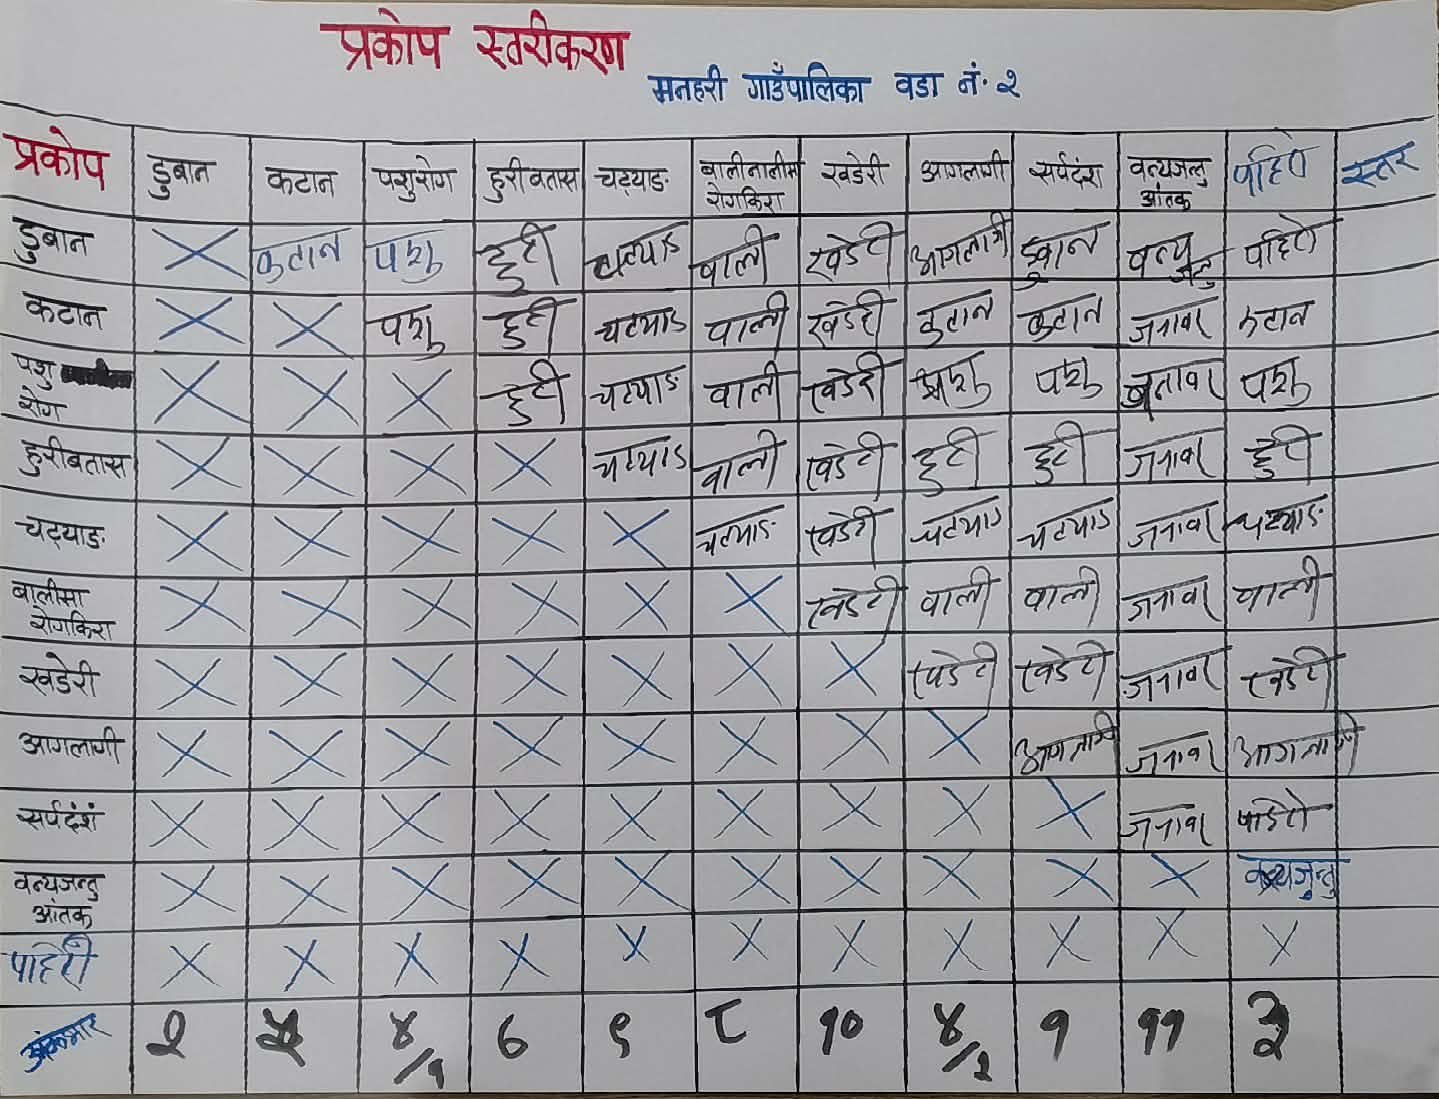 प्रकोप स्तरीकरण
मनहरी गाउँपालिका वडा नं. २
प्रकोप डुबान कटान पशुरोग हुरीबतास चट्याङ बालीनालीमा रोगकिरा खडेरी आगलागी सर्पदंश वन्यजन्तु आंतक पहिरो स्तर
डुबान कटान पशु हुरी चट्याङ बाली खडेरी आगलागी डुबान वन्यजन्तु पहिरो
कटान पशु हुरी चट्याङ बाली खडेरी कटान कटान जनावर कटान
पशु रोग हुरी चट्याङ बाली खडेरी पशु पशु जनावर पशु
हुरीबतास चट्याङ बाली खडेरी हुरी हुरी जनावर हुरी
चट्याङ चट्याङ खडेरी चट्याङ चट्याङ जनावर चट्याङ
बालीमा रोगकिरा खडेरी बाली बाली जनावर बाली
खडेरी खडेरी खडेरी जनावर खडेरी
आगलागी आगलागी जनावर आगलागी
सर्पदंशं जनावर पहिरो
वन्यजन्तु आंतक वन्यजन्तु
पहिरो
२ ४/१ ६ ९ ८ १० ४/२ १ ११ ३